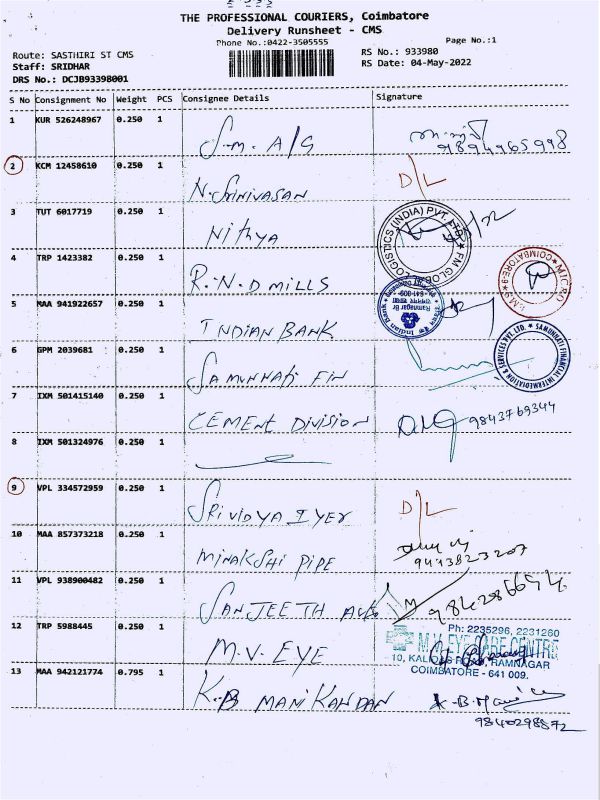 THE PROFESSIONAL COURIERS, Coimbatore
Delivery Runsheet - CMS
Phone No.:0422-3505555
Page No.:1
Route: SASTHIRI ST CMS
RS No.: 933980
Staff: SRIDHAR
RS Date: 04-May-2022
DRS No.: DCJB93398001
S No Consignment No Weight PCS Consignee Details Signature
1 KUR 526248967 0.250 1 S.m. A/G
9894965998
2 KCM 12458610 0.250 1 N. Srinivasan D/L
3 TUT 6017719 0.250 1 Nithya
LOGISTICS (INDIA) PVT. LTD. FM GLOBAL
4 TRP 1423382 0.250 1 R.N.D MILLS
COIMBATORE-9
5 MAA 941922657 0.250 1 INDIAN BANK
Indian Bank Ramnagar Br
6 GPM 2039681 0.250 1 Samunnati Fin
SAMUNNATI FINANCIAL INTERMEDIATION & SERVICES PVT. LTD.
7 IXM 501415140 0.250 1 CEMENT DIVISION
9843769344
8 IXM 501324976 0.250 1
9 VPL 334572959 0.250 1 SRIVIDYA IYER D/L
10 MAA 857373218 0.250 1 MINAKSHI PIPE
9443823207
11 VPL 938900482 0.250 1 SANJEETH
12 TRP 5988445 0.250 1 M.V. EYE
Ph: 2235296, 2231260
M.V. EYE CARE CENTRE
10, KALIDAS ROAD, RAMNAGAR
COIMBATORE - 641 009.
13 MAA 942121774 0.795 1 K.B MANIKANDAN
9840298572